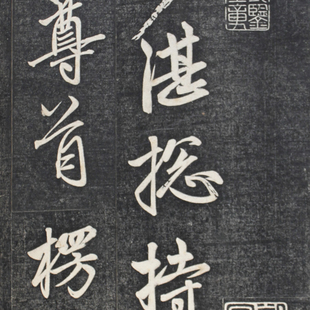 湛捴持
尊首楞